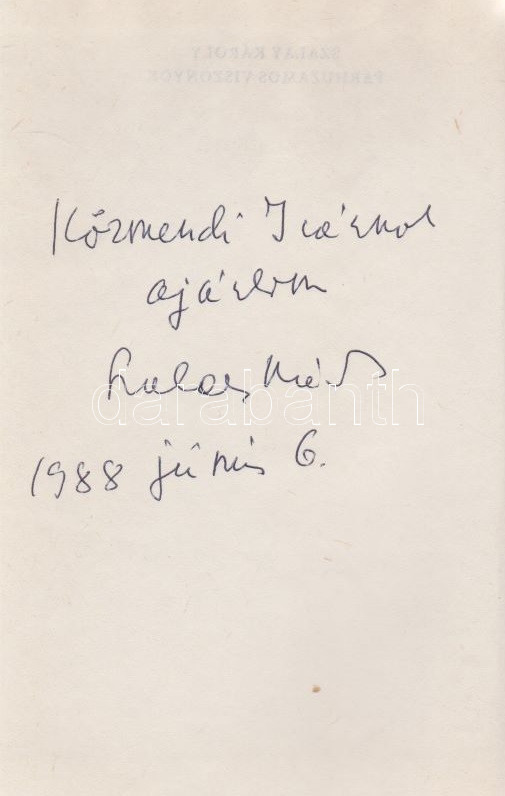 SZALAY KÁROLY
PÁRHUZAMOS VISZONYOK
Körmendi
ajánlom
Szalay Károly
1988 június 6.
darabanth